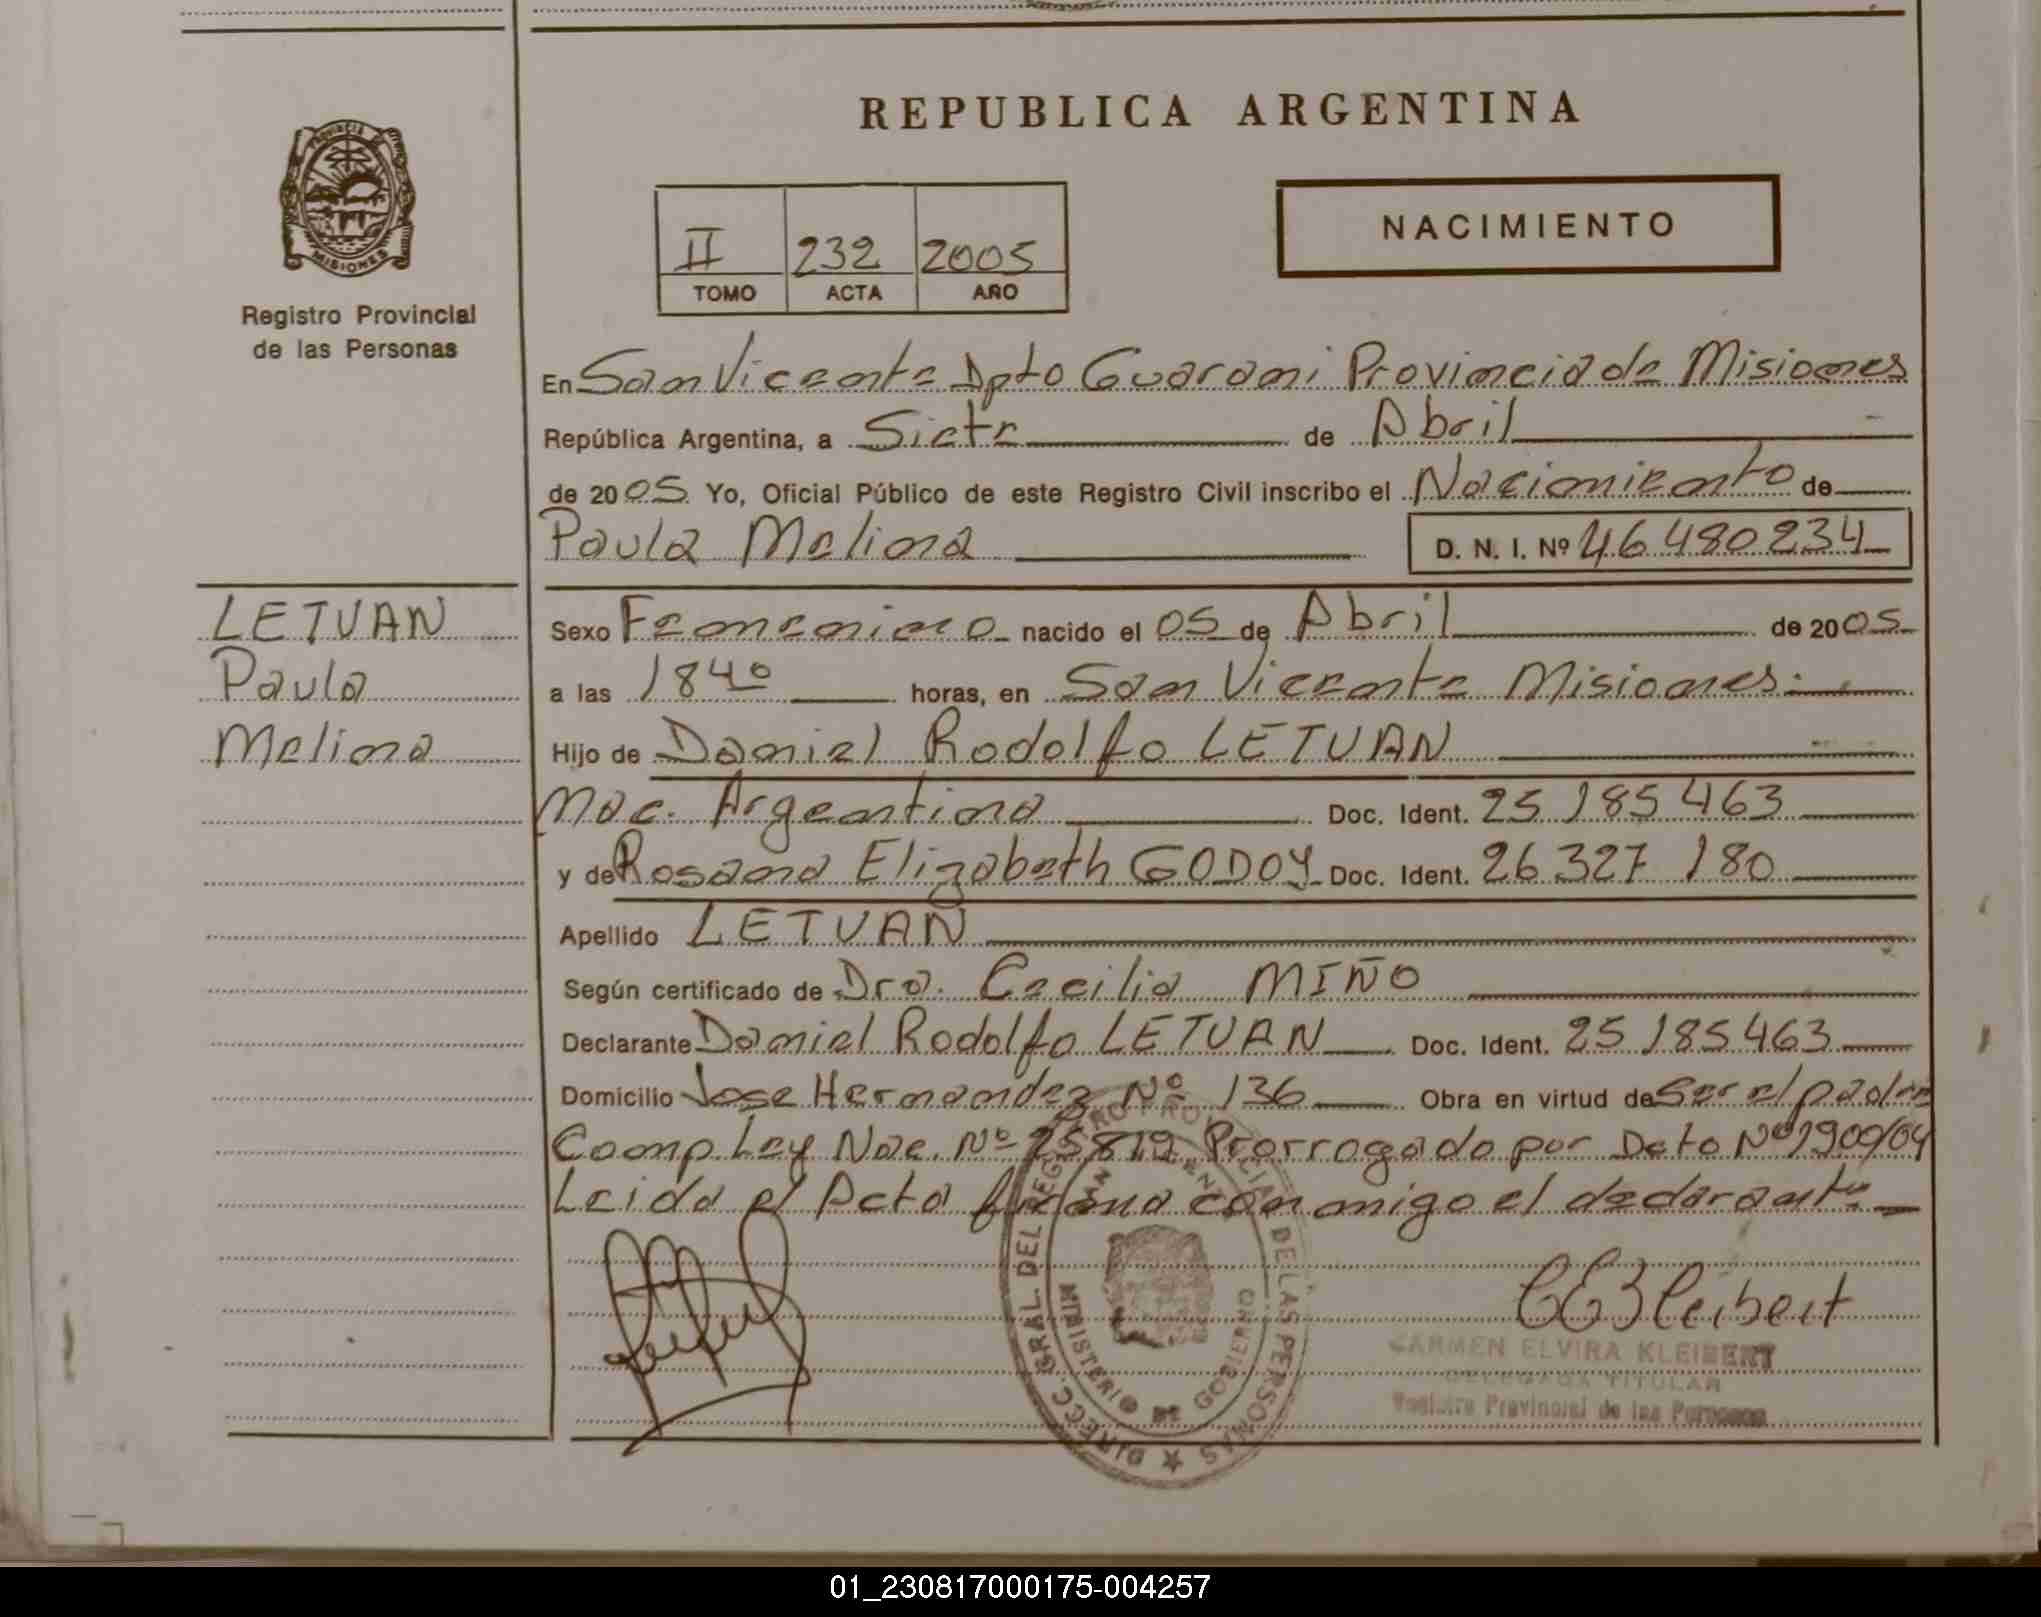 REPUBLICA ARGENTINA
PROVINCIA DE
MISIONES
Registro Provincial
de las Personas
II 232 2005
TOMO ACTA AÑO
NACIMIENTO
En San Vicente Dpto Guarani Provincia de Misiones
República Argentina, a Siete de Abril
de 2005 Yo, Oficial Público de este Registro Civil inscribo el Nacimiento de
Paula Melina D. N. I. Nº 46480234
LETUAN
Paula
Melina
Sexo Femenino nacido el 05 de Abril de 2005
a las 18 40 horas, en San Vicente Misiones.
Hijo de Daniel Rodolfo LETUAN
Nac. Argentina Doc. Ident. 25 185 463
y de Rosana Elizabeth GODOY Doc. Ident. 26 327 180
Apellido LETUAN
Según certificado de Dra. Cecilia MIÑO
Declarante Daniel Rodolfo LETUAN Doc. Ident. 25 185 463
Domicilio Jose Hernandez Nº 136 Obra en virtud de Ser el padre
Comp Ley Nac. Nº 25 819 Prorrogado por Dcto Nº 1900/04
Leida el Acta firma conmigo el declarante
DIRECC. GRAL. DEL REGISTRO PROVINCIAL DE LAS PERSONAS
MINISTERIO DE GOBIERNO
CEKleibert
CARMEN ELVIRA KLEIBERT
DELEGADA TITULAR
Registro Provincial de las Personas
01_230817000175-004257